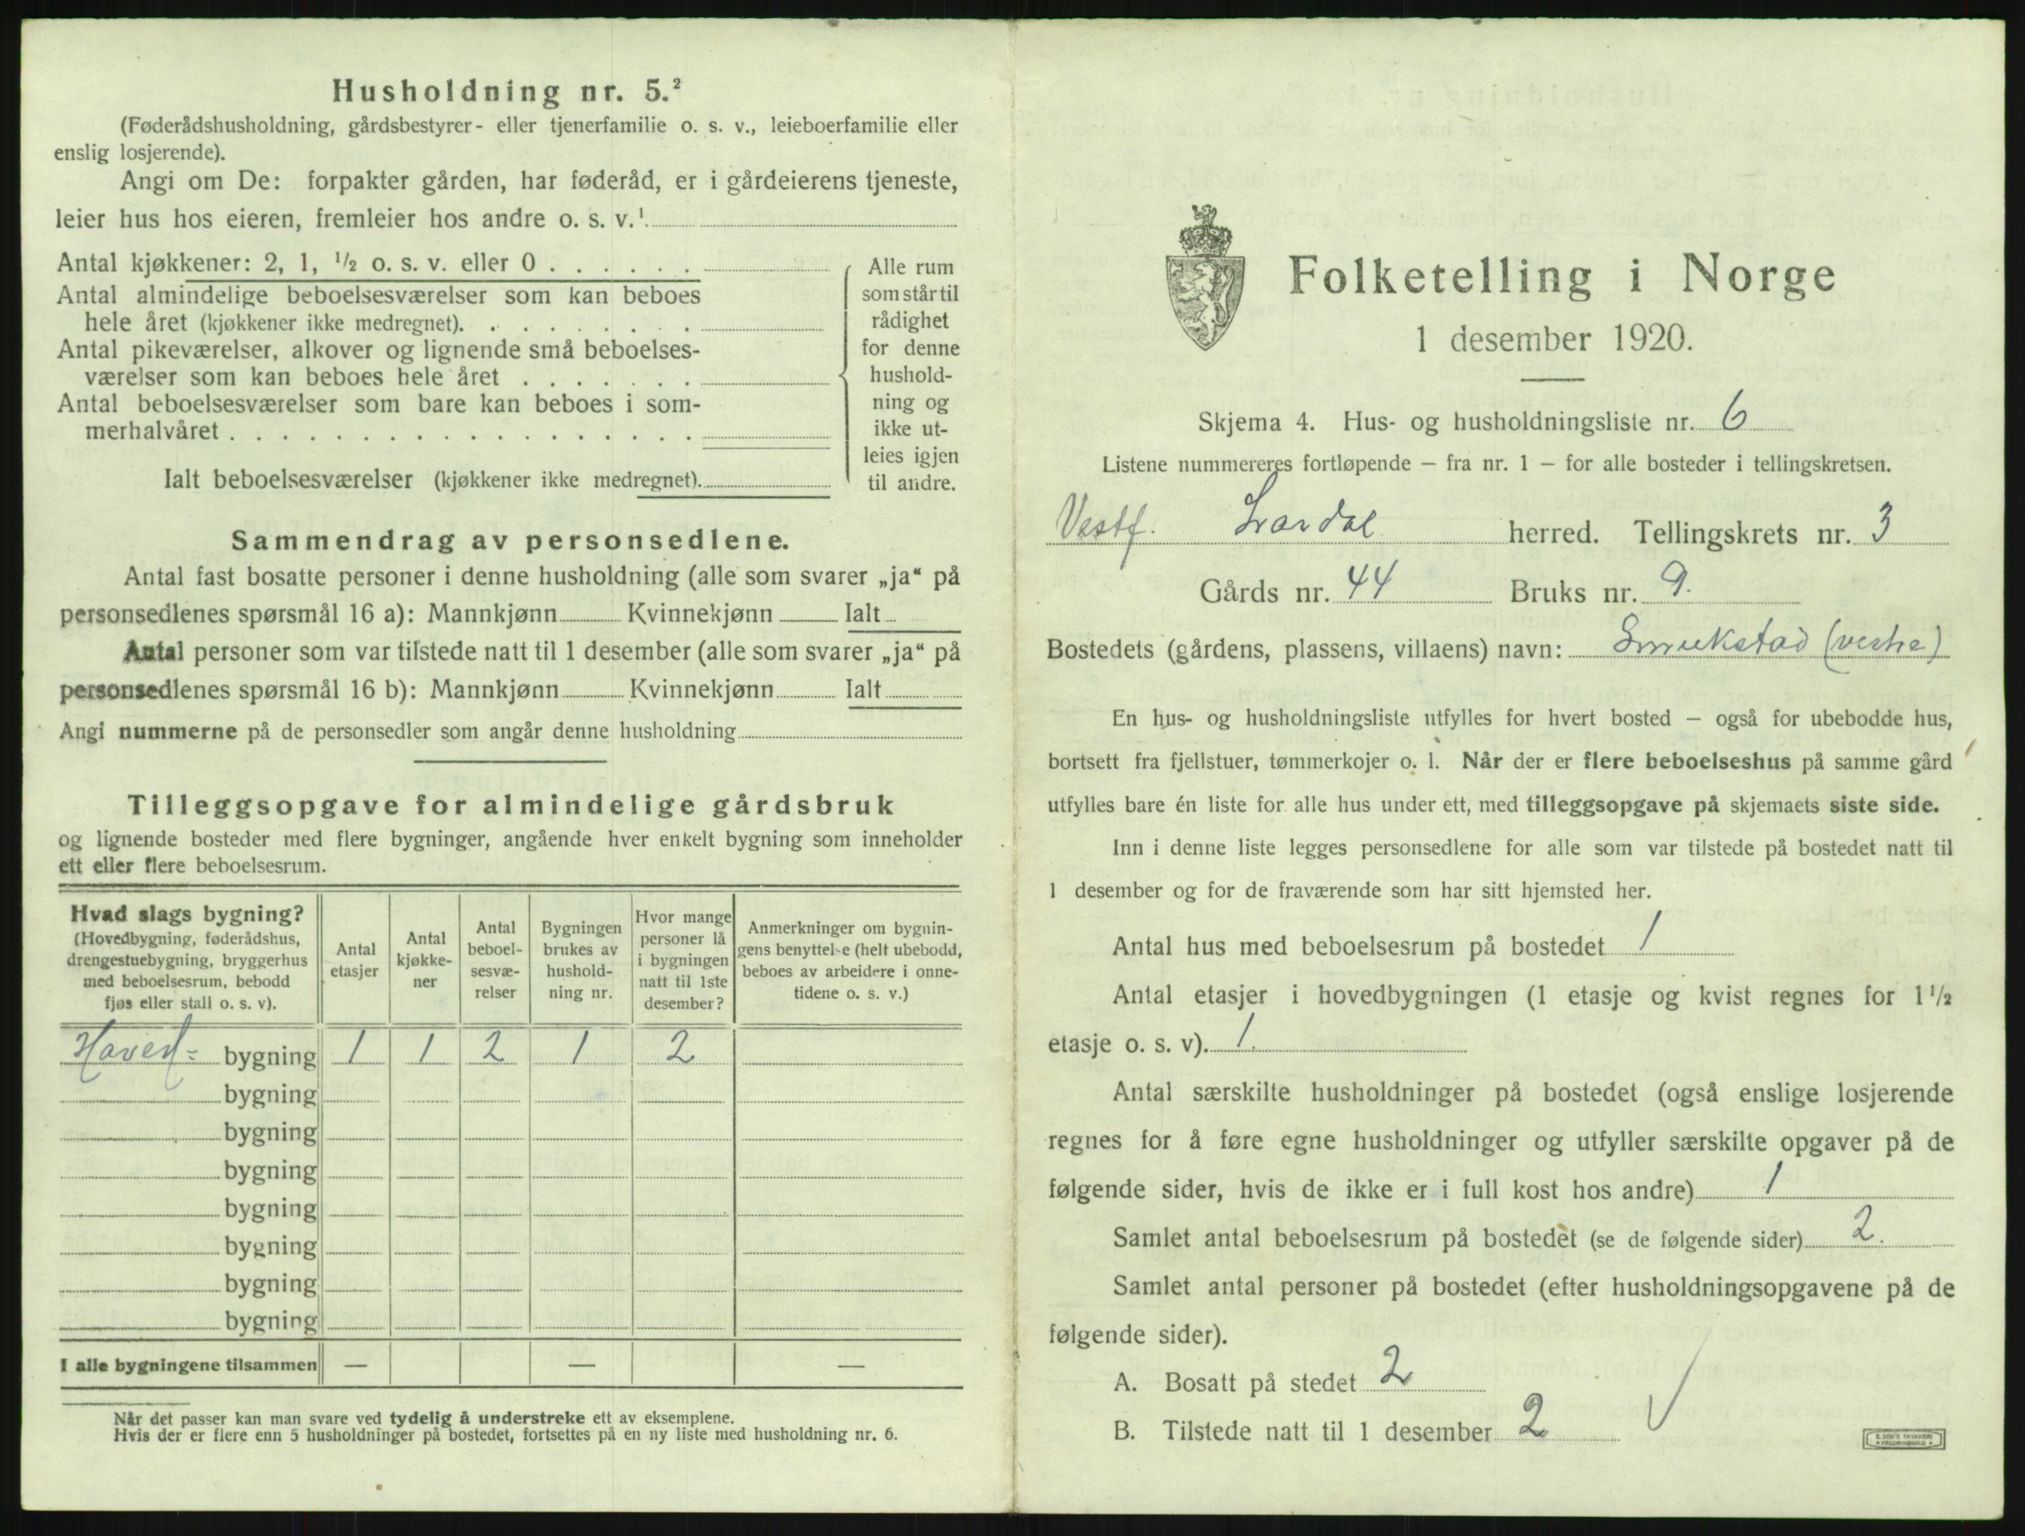 Husholdning nr. 5.²
(Føderådshusholdning, gårdsbestyrer- eller tjenerfamilie o. s. v., leieboerfamilie eller
enslig losjerende).
Angi om De: forpakter gården, har føderåd, er i gårdeierens tjeneste,
leier hus hos eieren, fremleier hos andre o. s. v.¹
Antal kjøkkener: 2, 1, ½ o. s. v. eller 0 . . . . . .
Antal almindelige beboelsesværelser som kan beboes
hele året (kjøkkener ikke medregnet). . . . . . . . .
Antal pikeværelser, alkover og lignende små beboelses-
værelser som kan beboes hele året . . . . . . .
Antal beboelsesværelser som bare kan beboes i som-
merhalvåret . . . . . . . . . . . . . . . . . .
Ialt beboelsesværelser (kjøkkener ikke medregnet).
Alle rum
som står til
rådighet
for denne
hushold-
ning og
ikke ut-
leies igjen
til andre.
Sammendrag av personsedlene.
Antal fast bosatte personer i denne husholdning (alle som svarer „ja“ på
personsedlenes spørsmål 16 a): Mannkjønn Kvinnekjønn Ialt
Antal personer som var tilstede natt til 1 desember (alle som svarer „ja“ på
personsedlenes spørsmål 16 b): Mannkjønn Kvinnekjønn Ialt
Angi nummerne på de personsedler som angår denne husholdning
Tilleggsopgave for almindelige gårdsbruk
og lignende bosteder med flere bygninger, angående hver enkelt bygning som inneholder
ett eller flere beboelsesrum.
Hvad slags bygning?
(Hovedbygning, føderådshus,
drengestuebygning, bryggerhus
med beboelsesrum, bebodd
fjøs eller stall o. s. v).
Antal
etasjer
Antal
kjøkke-
ner
Antal
beboel-
sesvæ-
relser
Bygningen
brukes av
hushold-
ning nr.
Hvor mange
personer lå
i bygningen
natt til 1ste
desember?
Anmerkninger om bygnin-
gens benyttelse (helt ubebodd,
beboes av arbeidere i onne-
tidene o. s. v.)
Hoved- bygning 1 1 2 1 2
bygning
bygning
bygning
bygning
bygning
bygning
bygning
I alle bygningene tilsammen — — —
Når det passer kan man svare ved tydelig å understreke ett av eksemplene.
Hvis der er flere enn 5 husholdninger på bostedet, fortsettes på en ny liste med husholdning nr. 6.
Folketelling i Norge
1 desember 1920.
Skjema 4. Hus- og husholdningsliste nr. 6
Listene nummereres fortløpende – fra nr. 1 – for alle bosteder i tellingskretsen.
Vestf. Lardal herred. Tellingskrets nr. 3
Gårds nr. 44 Bruks nr. 9.
Bostedets (gårdens, plassens, villaens) navn: (vestre)
En hus- og husholdningsliste utfylles for hvert bosted – også for ubebodde hus,
bortsett fra fjellstuer, tømmerkojer o. l. Når der er flere beboelseshus på samme gård
utfylles bare én liste for alle hus under ett, med tilleggsopgave på skjemaets siste side.
Inn i denne liste legges personsedlene for alle som var tilstede på bostedet natt til
1 desember og for de fraværende som har sitt hjemsted her.
Antal hus med beboelsesrum på bostedet 1
Antal etasjer i hovedbygningen (1 etasje og kvist regnes for 1½
etasje o. s. v). 1.
Antal særskilte husholdninger på bostedet (også enslige losjerende
regnes for å føre egne husholdninger og utfyller særskilte opgaver på de
følgende sider, hvis de ikke er i full kost hos andre) 1
Samlet antal beboelsesrum på bostedet (se de følgende sider) 2.
Samlet antal personer på bostedet (efter husholdningsopgavene på de
følgende sider).
A. Bosatt på stedet 2
B. Tilstede natt til 1 desember 2 ✓